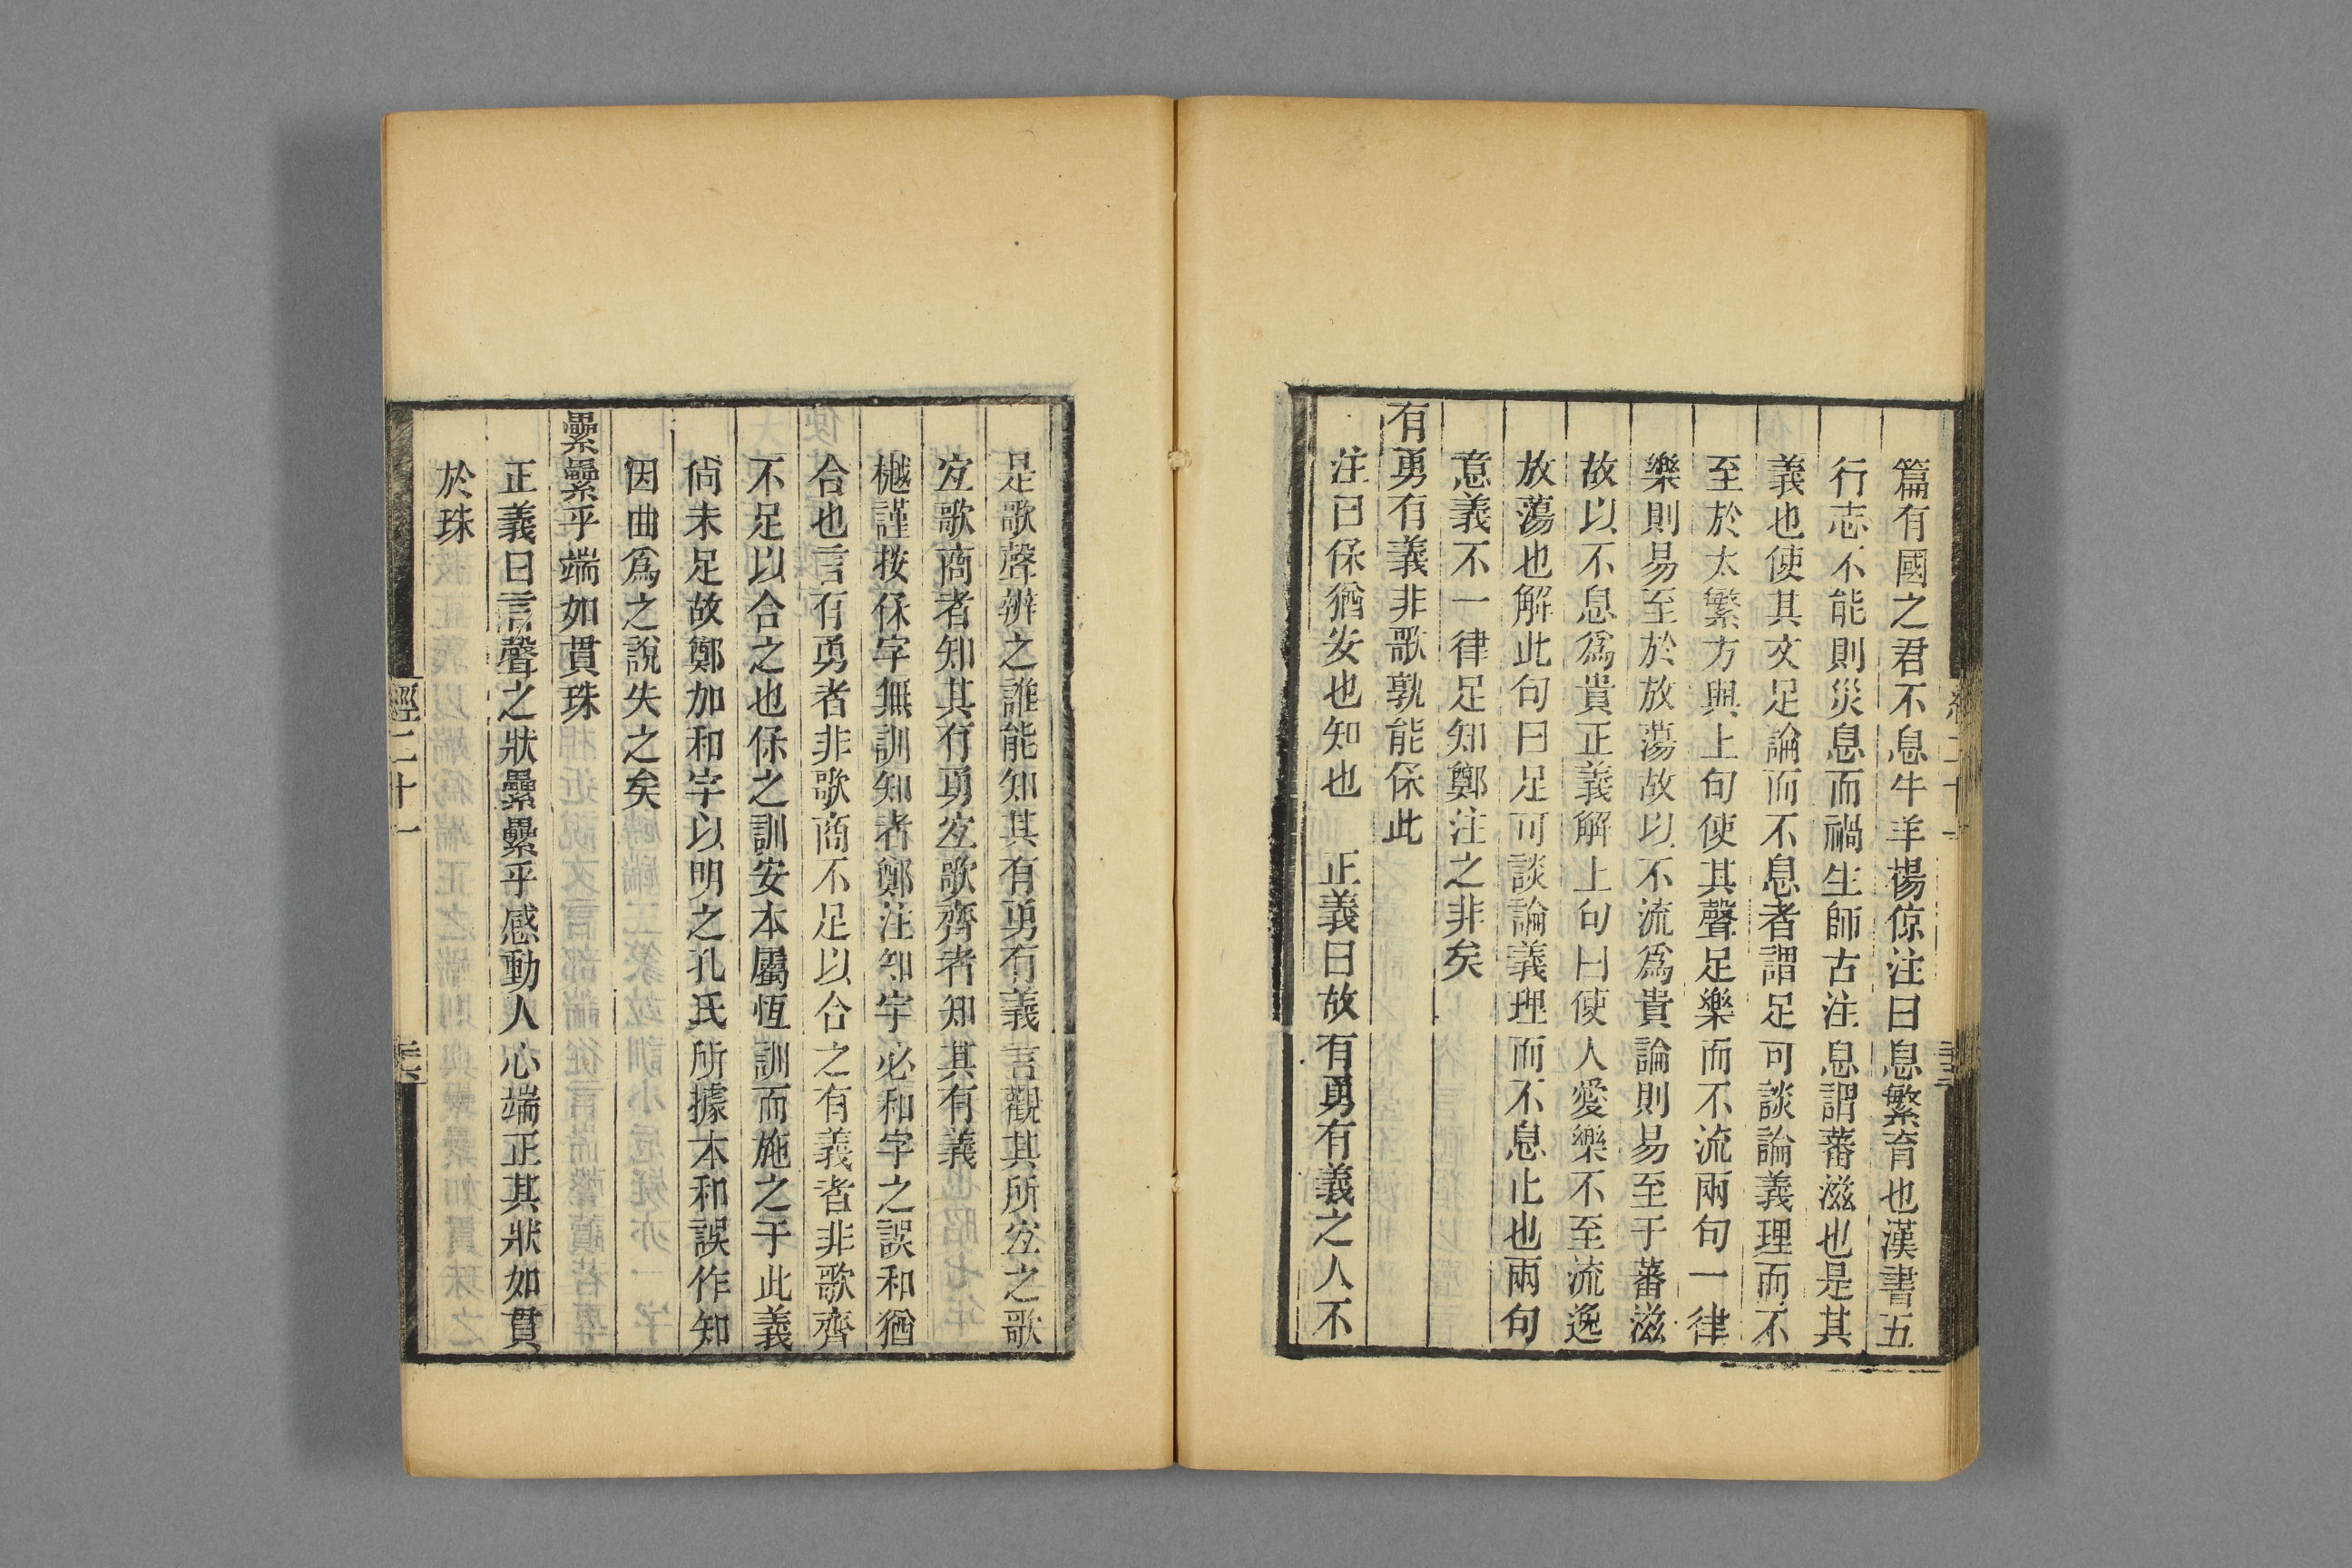 篇有國之君不息牛羊楊倞注曰息繁育也漢書五
行志不能則災息而禍生師古注息謂蕃滋也是其
義也使其文足論而不息者謂足可談論義理而不
至於太繁方與上句使其聲足樂而不流兩句一律
樂則易至於放蕩故以不流爲貴論則易至于蕃滋
故以不息爲貴正義解上句曰使人愛樂不至流逸
放蕩也解此句曰足可談論義理而不息止也兩句
意義不一律足知鄭注之非矣
有勇有義非歌孰能保此
注曰保猶安也知也 正義曰故有勇有義之人不
是歌聲辨之誰能知其有勇有義言觀其所宐之歌
宐歌商者知其有勇宐歌齊者知其有義
樾謹按保字無訓知者鄭注知字必和字之誤和猶
合也言有勇者非歌商不足以合之有義者非歌齊
不足以合之也保之訓安本屬恆訓而施之于此義
尙未足故鄭加和字以明之孔氏所據本和誤作知
因曲爲之說失之矣
纍纍乎端如貫珠
正義曰言聲之狀纍纍乎感動人心端正其狀如貫
於珠
經二十一